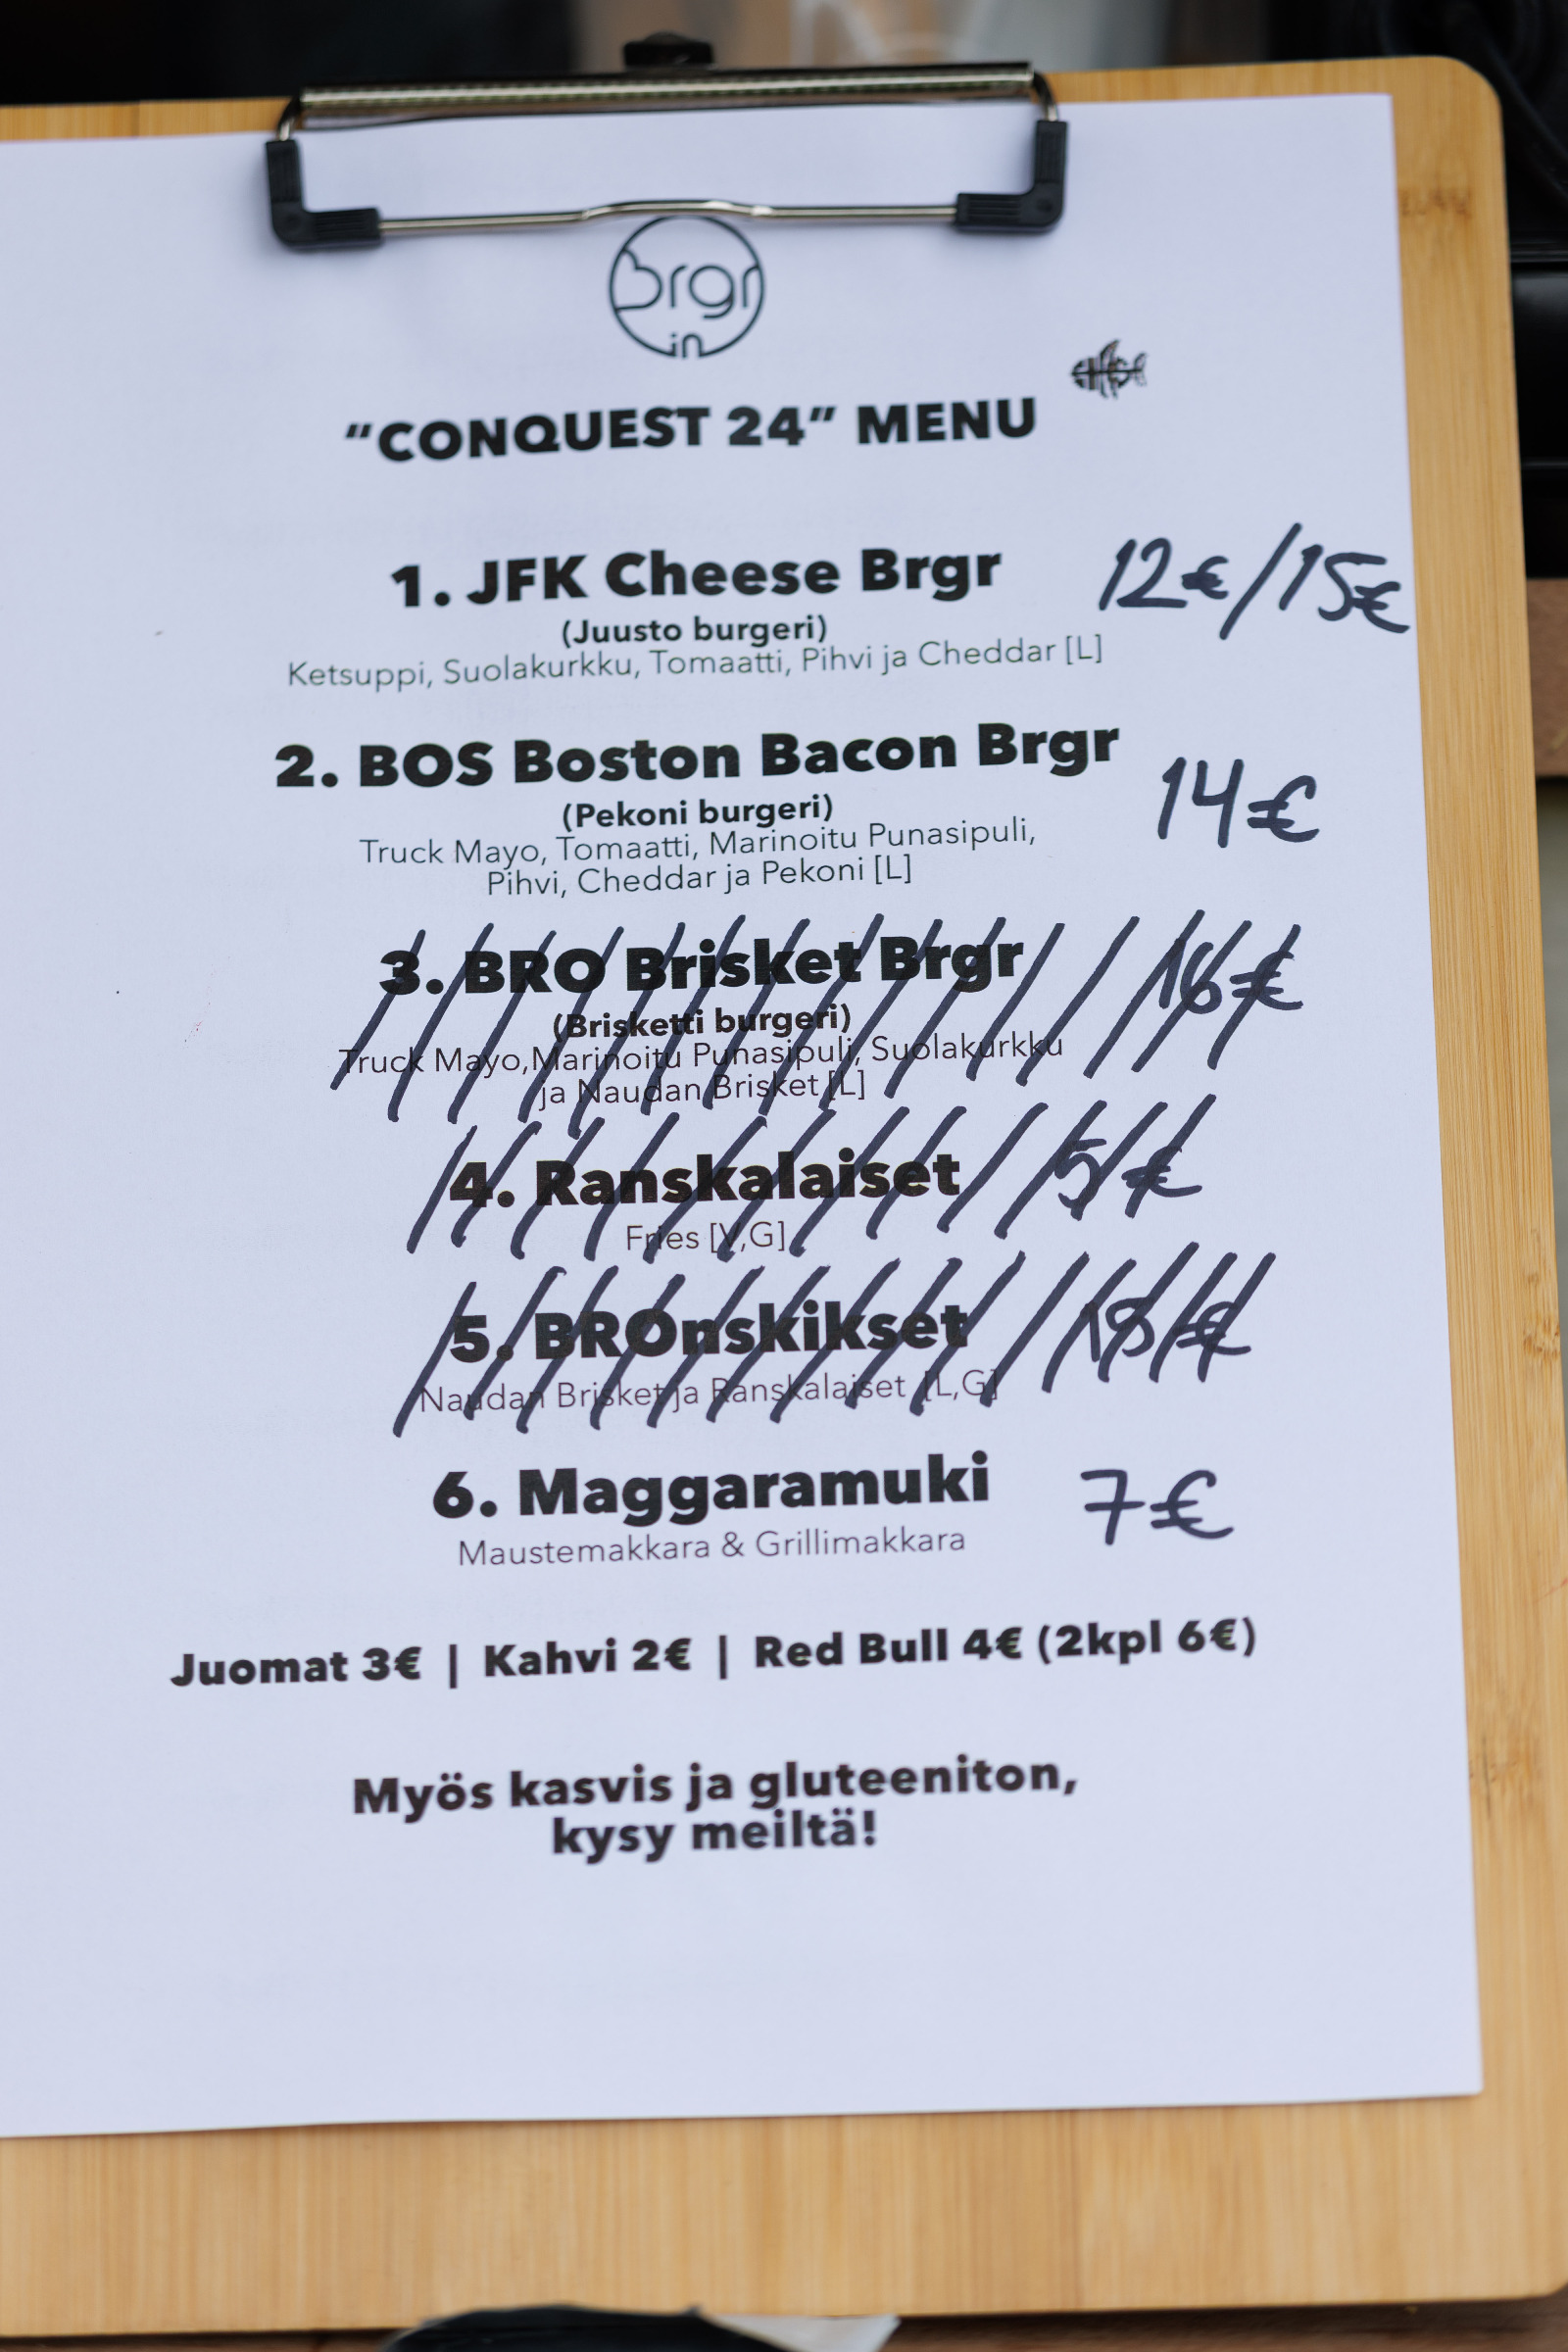 Brgr
in
"CONQUEST 24" MENU
1. JFK Cheese Brgr 12€/15€
(Juusto burgeri)
Ketsuppi, Suolakurkku, Tomaatti, Pihvi ja Cheddar [L]
2. BOS Boston Bacon Brgr 14€
(Pekoni burgeri)
Truck Mayo, Tomaatti, Marinoitu Punasipuli,
Pihvi, Cheddar ja Pekoni [L]
3. BRO Brisket Brgr 16€
(Brisketti burgeri)
Truck Mayo,Marinoitu Punasipuli, Suolakurkku
ja Naudan Brisket [L]
4. Ranskalaiset 5€
Fries [V,G]
5. BROnskikset 18€
Naudan Brisket ja Ranskalaiset [L,G]
6. Maggaramuki 7€
Maustemakkara & Grillimakkara
Juomat 3€ | Kahvi 2€ | Red Bull 4€ (2kpl 6€)
Myös kasvis ja gluteeniton,
kysy meiltä!